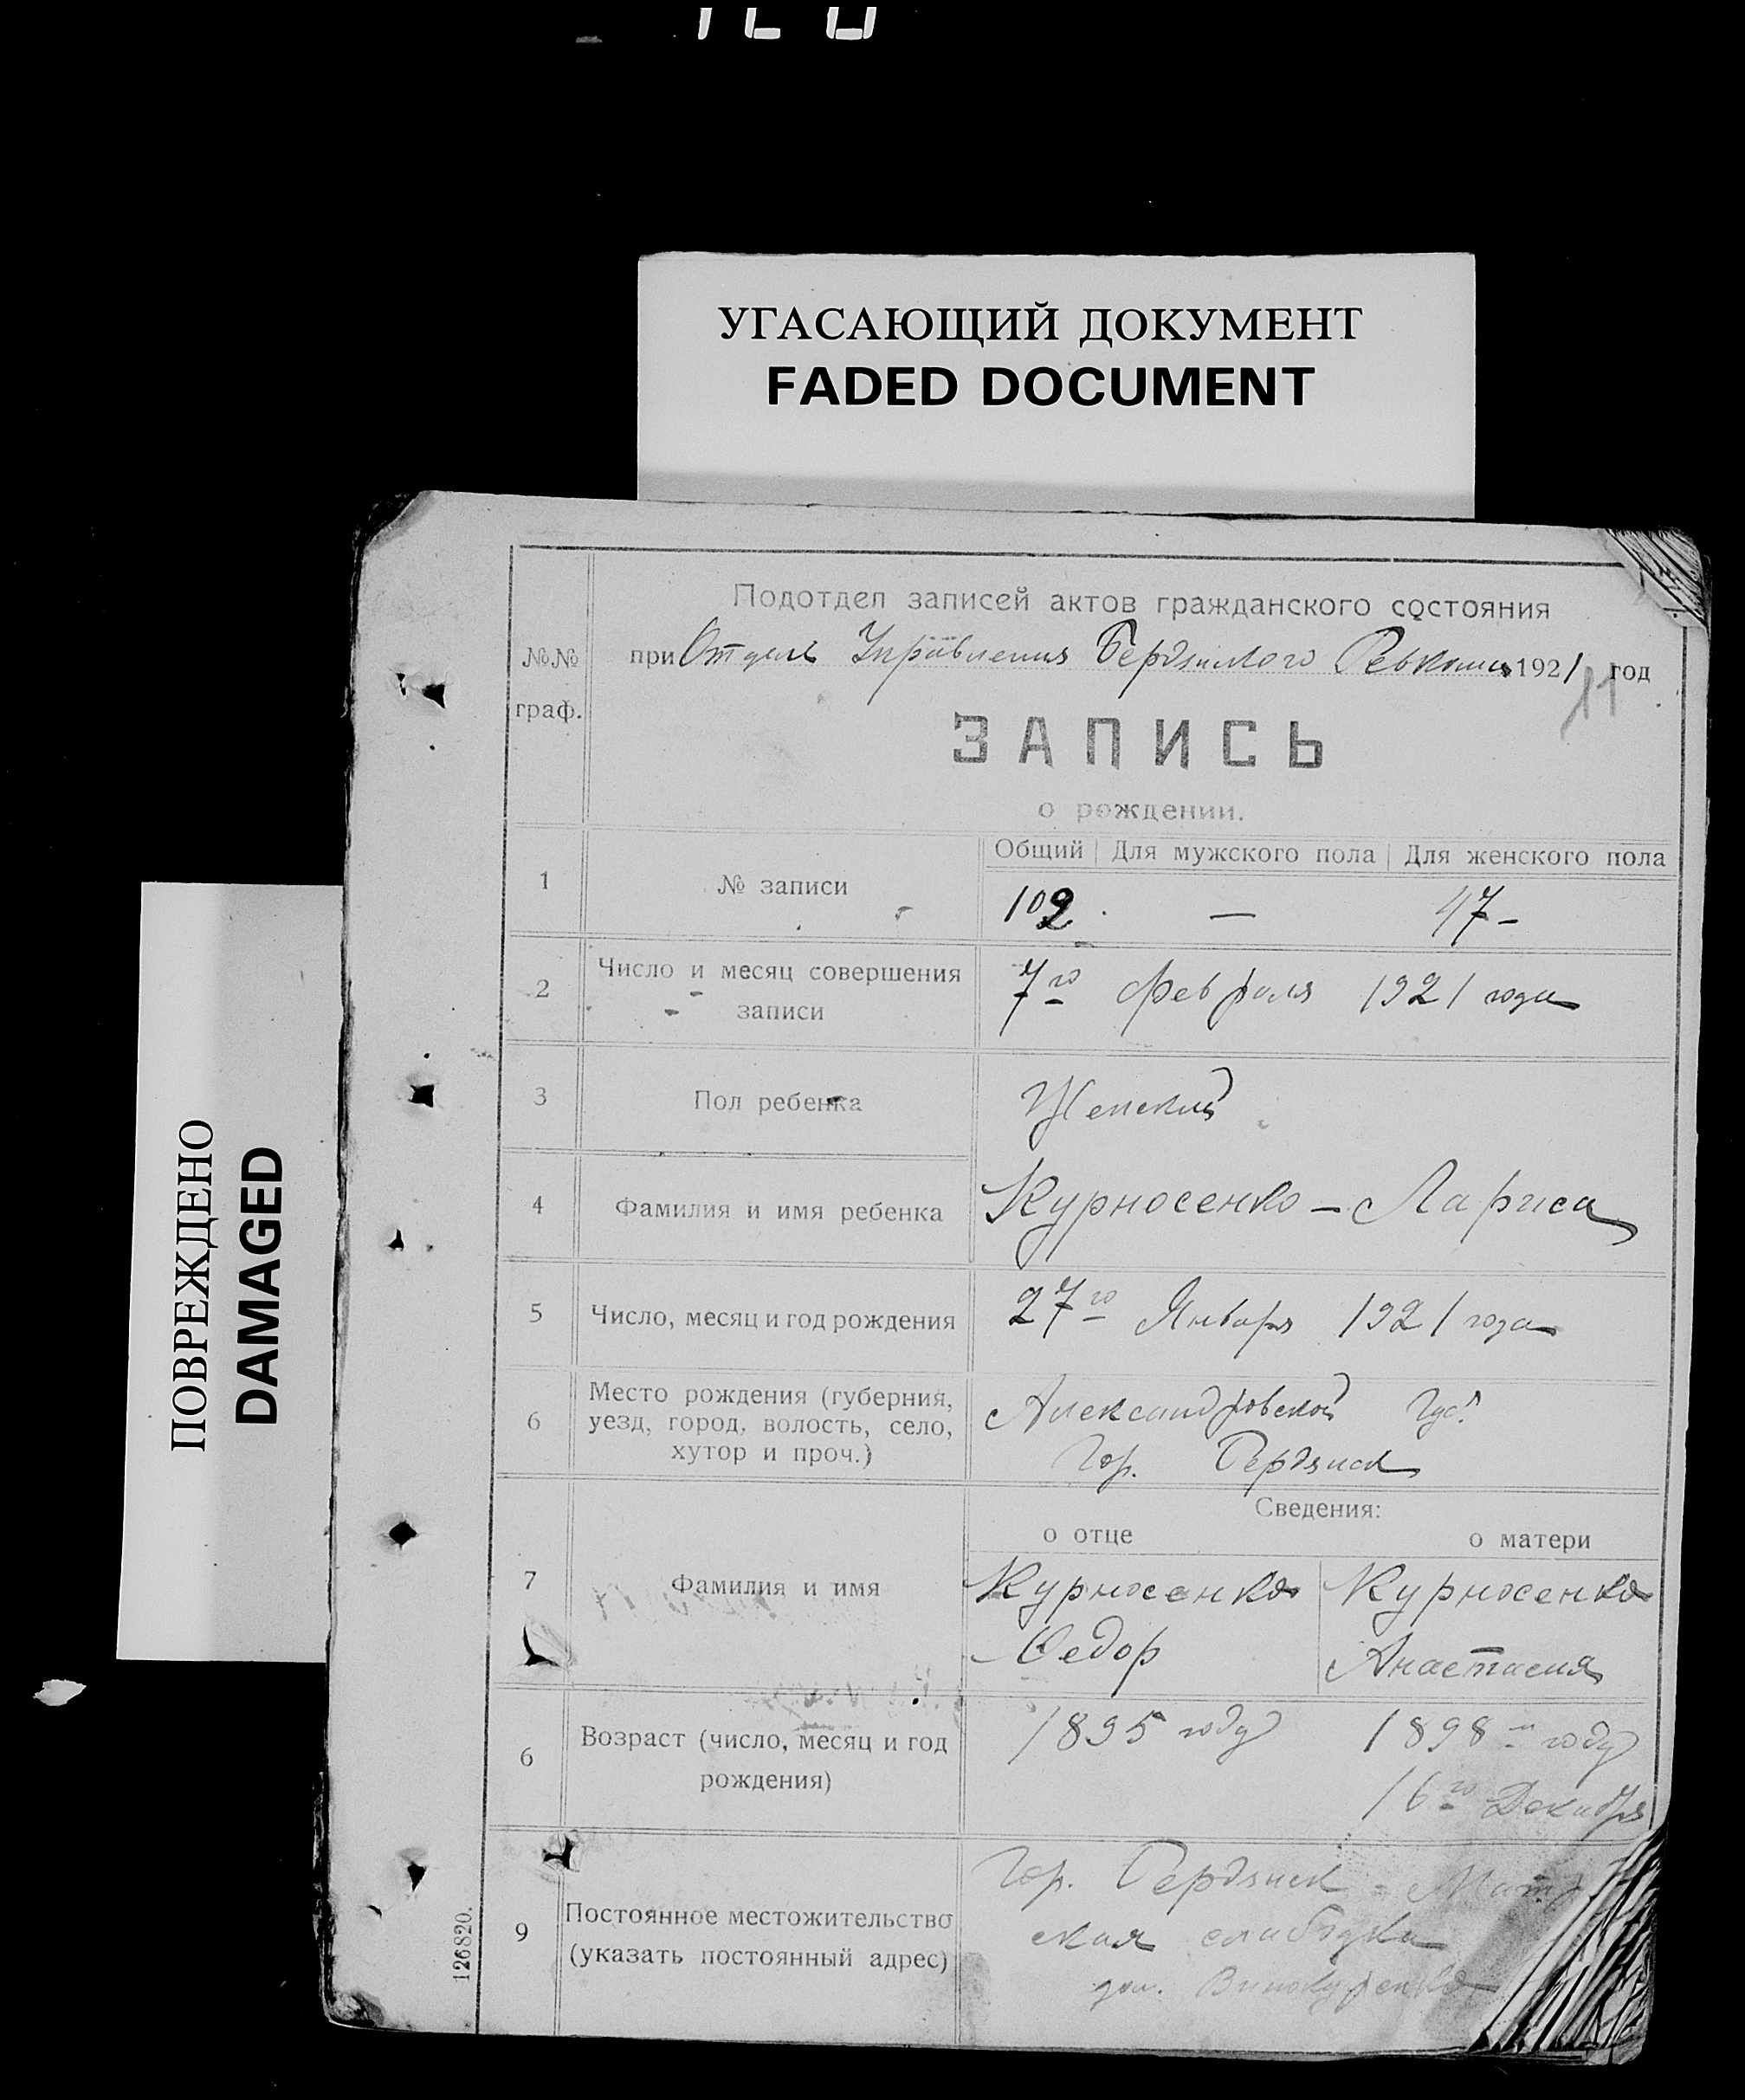 УГАСАЮЩИЙ ДОКУМЕНТ
FADED DOCUMENT
ПОВРЕЖДЕНО
DAMAGED
Подотдел записей актов гражданского состояния
№№ граф.
при Отделе Управления Бердянского Ревкома 1921 год
11
ЗАПИСЬ
о рождении.
Общий Для мужского пола Для женского пола
1 № записи 102. — 47-
2 Число и месяц совершения записи 7го Февраля 1921 года
3 Пол ребенка Женский
4 Фамилия и имя ребенка Курносенко - Лариса
5 Число, месяц и год рождения 27го Января 1921 года
6 Место рождения (губерния, уезд, город, волость, село, хутор и проч.) Александровской Губ.
Гор. Бердянск
Сведения:
о отце о матери
7 Фамилия и имя Курносенко Курносенко
Федор Анастасия
6 Возраст (число, месяц и год рождения) 1895 году 1898 году
16го Декабря
9 Постоянное местожительство (указать постоянный адрес) Гор. Бердянск -
ская слабодка
дом. Винокуренко
126820.